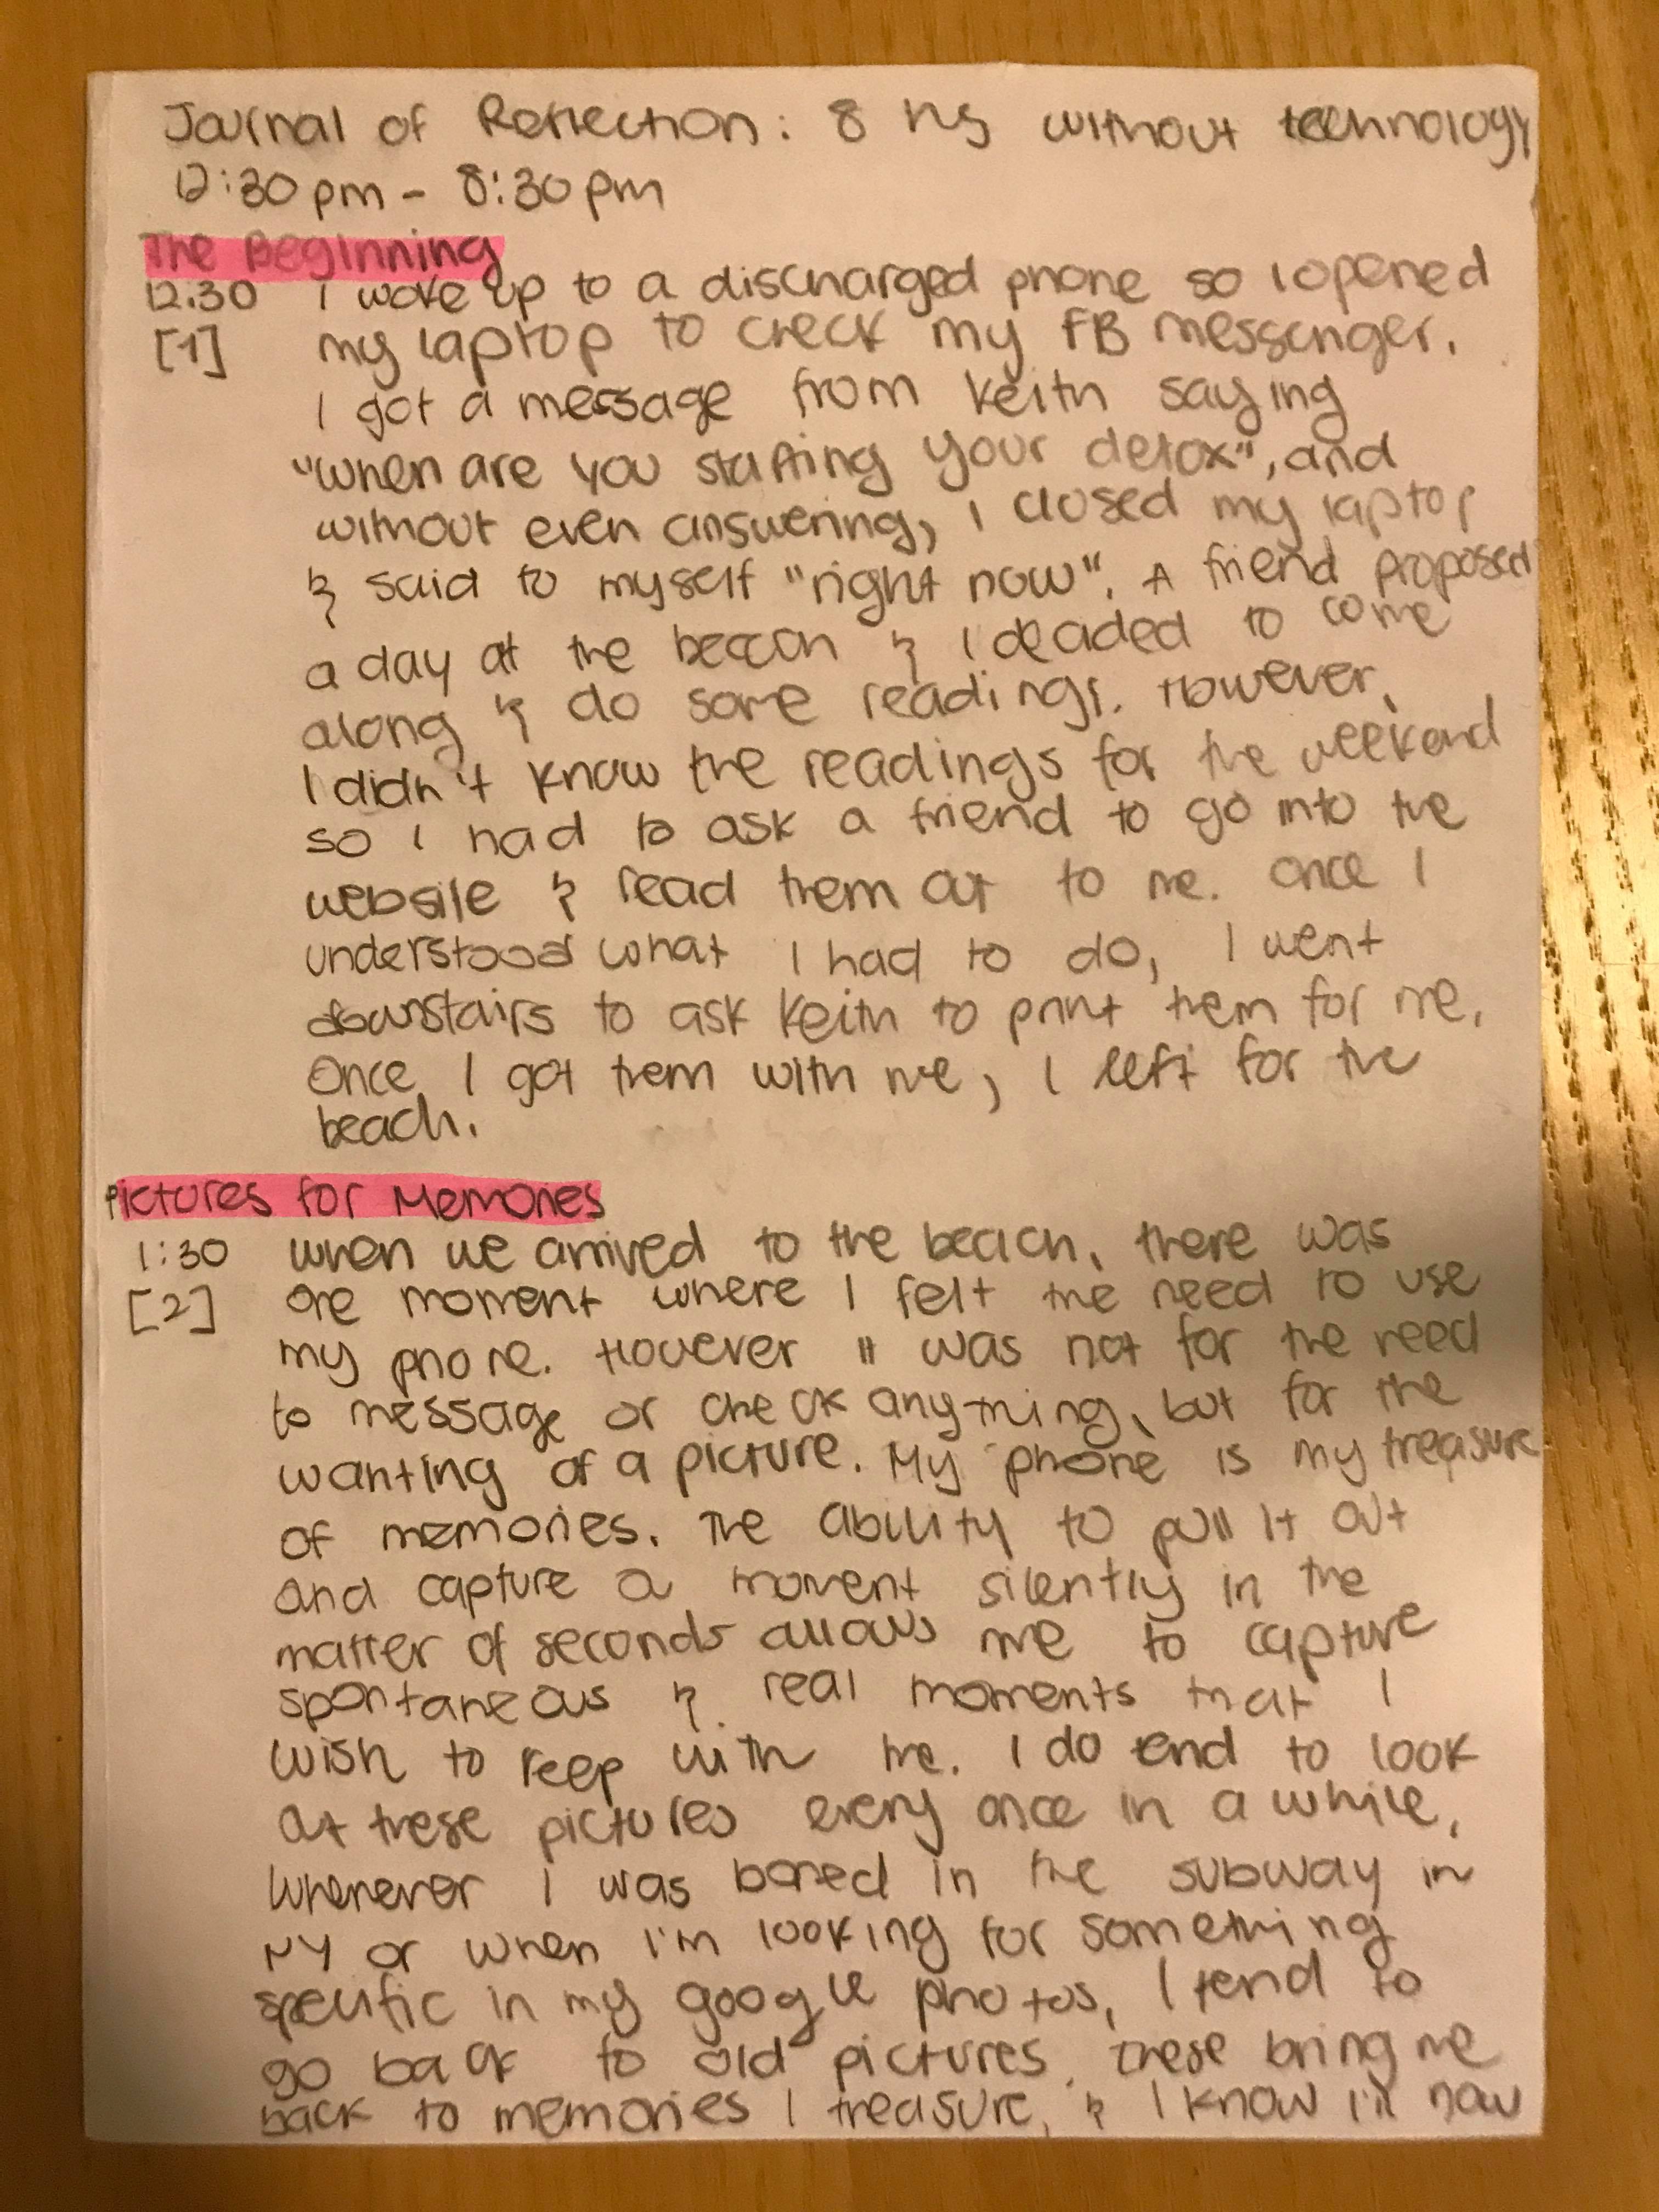 Journal of Reflection: 8 hrs without technology
12:30 pm - 8:30 pm
The Beginning
12:30 I woke up to a discharged phone so I opened
[1] my laptop to check my FB messenger.
I got a message from Keith saying
"when are you starting your detox", and
without even answering, I closed my laptop
& said to myself "right now". A friend proposed
a day at the beach & I decided to come
along & do some readings. However,
I didn't know the readings for the weekend
so I had to ask a friend to go into the
website & read them out to me. Once I
understood what I had to do, I went
downstairs to ask Keith to print them for me.
Once I got them with me, I left for the
beach.
Pictures for Memories
1:30 when we arrived to the beach, there was
[2] one moment where I felt the need to use
my phone. However it was not for the need
to message or check anything, but for the
wanting of a picture. My phone is my treasure
of memories. The ability to pull it out
and capture a moment silently in the
matter of seconds allows me to capture
spontaneous & real moments that I
wish to keep with me. I do tend to look
at these pictures every once in a while.
Whenever I was bored in the subway in
NY or when I'm looking for something
specific in my google photos, I tend to
go back to old pictures. these bring me
back to memories I treasure, & I know I'll now